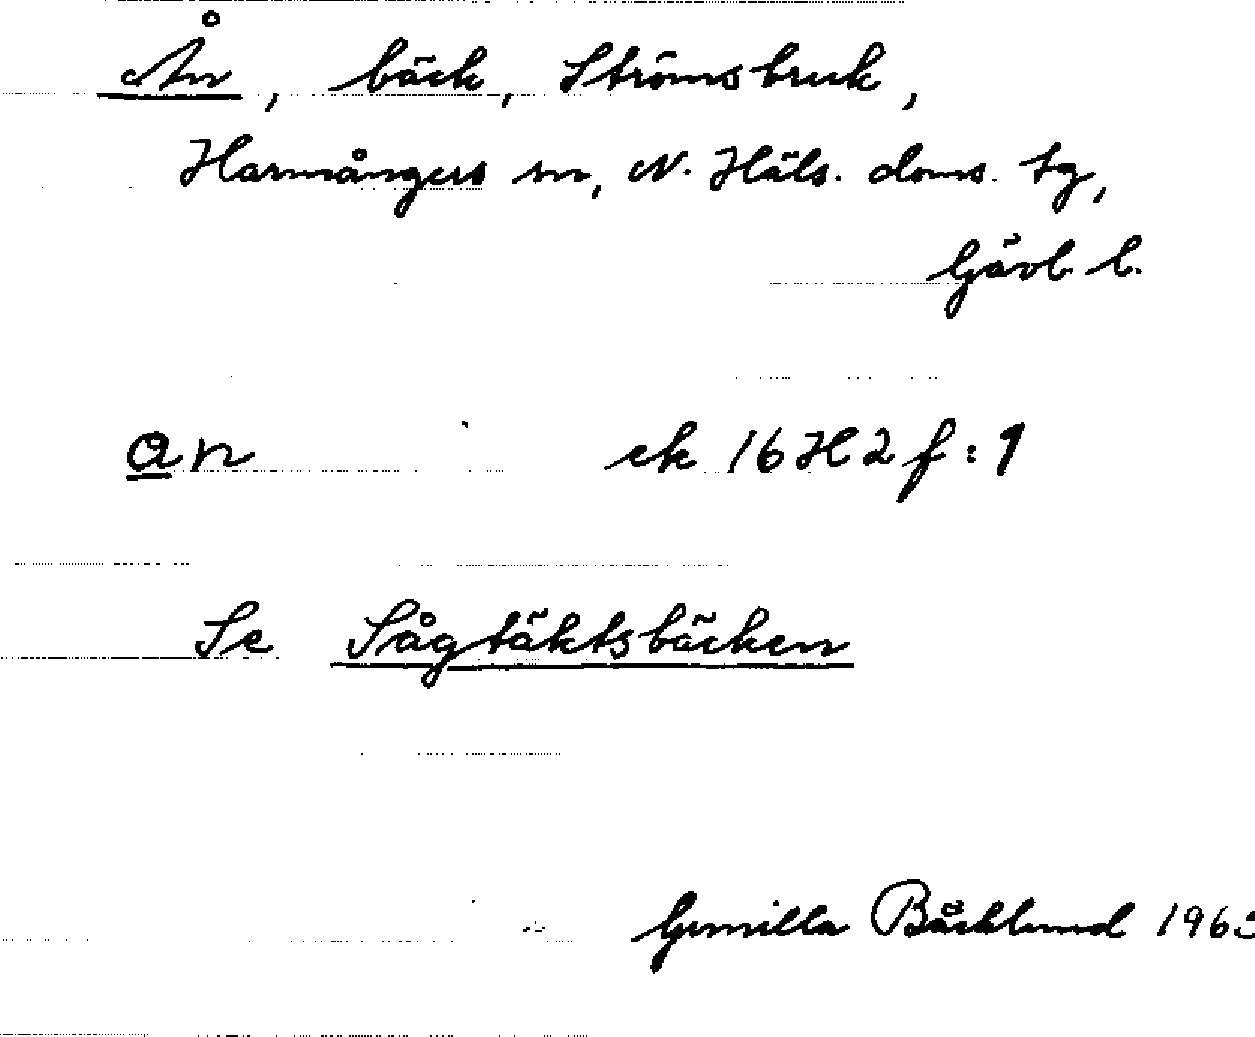 Ån, bäck, Strömsbruk,
Harmångers sn, N. Häls. doms. tg,
Gävl. l.
an ek 16H2f:1
Se Sågtäktsbäcken
Gunilla Bäcklund 1963